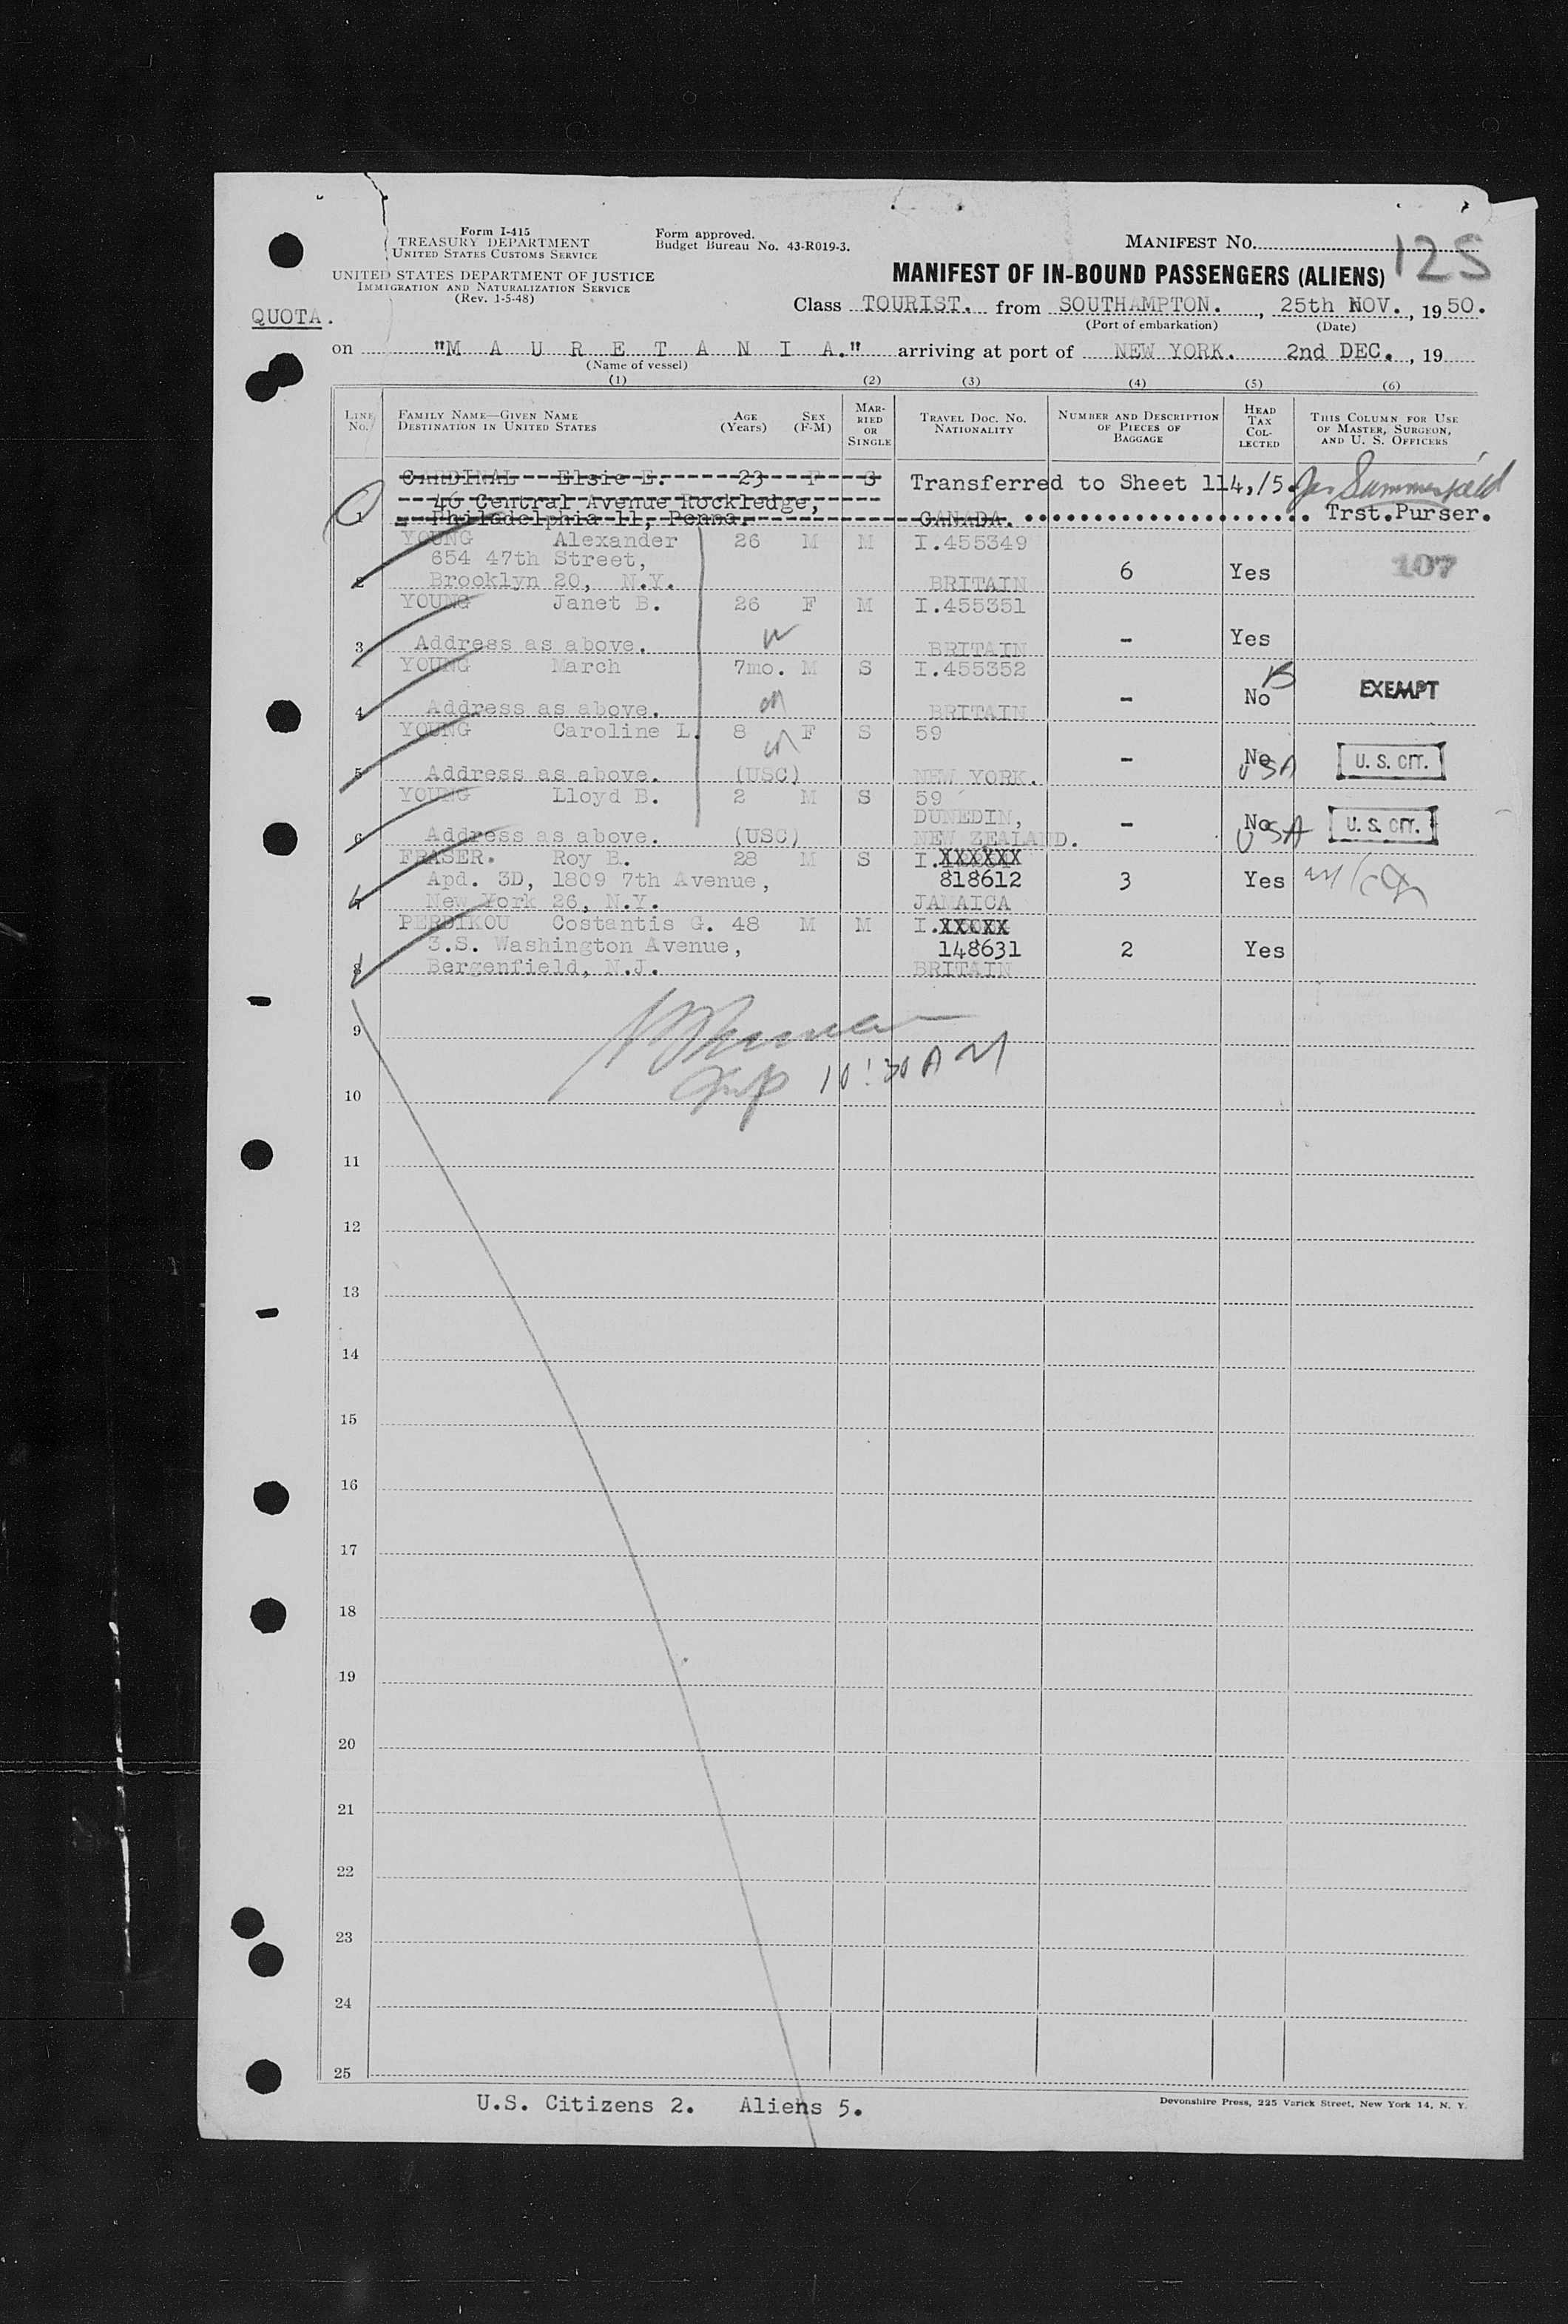 Form I-415
TREASURY DEPARTMENT
UNITED STATES CUSTOMS SERVICE
UNITED STATES DEPARTMENT OF JUSTICE
IMMIGRATION AND NATURALIZATION SERVICE
(Rev. 1-5-48)
Form approved.
Budget Bureau No. 43-R019-3.
MANIFEST NO. 125
MANIFEST OF IN-BOUND PASSENGERS (ALIENS)
QUOTA.
Class TOURIST. from SOUTHAMPTON., 25th NOV., 1950.
(Port of embarkation) (Date)
on "M A U R E T A N I A." arriving at port of NEW YORK. 2nd DEC., 19
(Name of vessel)
(1) (2) (3) (4) (5) (6)
LINE NO. FAMILY NAME—GIVEN NAME DESTINATION IN UNITED STATES AGE (YEARS) SEX (F-M) MARRIED OR SINGLE TRAVEL DOC. NO. NATIONALITY NUMBER AND DESCRIPTION OF PIECES OF BAGGAGE HEAD TAX COLLECTED THIS COLUMN FOR USE OF MASTER, SURGEON, AND U. S. OFFICERS
CARDINAL Elsie E. 23 F S Transferred to Sheet 114,/5. Jas Summerfield
46 Central Avenue Rockledge,
1 Philadelphia 11, Penna. CANADA. Trst.Purser.
YOUNG Alexander 26 M M I.455349
654 47th Street,
2 Brooklyn 20, N.Y. BRITAIN 6 Yes 107
YOUNG Janet B. 26 F M I.455351
3 Address as above. BRITAIN - Yes
YOUNG March 7mo. M S I.455352
4 Address as above. BRITAIN - No EXEMPT
YOUNG Caroline L. 8 F S 59
5 Address as above. (USC) NEW YORK. - No USA U. S. CIT.
YOUNG Lloyd B. 2 M S 59
DUNEDIN,
6 Address as above. (USC) NEW ZEALAND. - No USA U. S. CIT.
FRASER. Roy B. 28 M S I.XXXXXX
Apd. 3D, 1809 7th Avenue, 818612 3 Yes
7 New York 26, N.Y. JAMAICA
PERDIKOU Costantis G. 48 M M I.XXXXX
3.S. Washington Avenue, 148631 2 Yes
8 Bergenfield, N.J. BRITAIN
9
10:30 AM
10
11
12
13
14
15
16
17
18
19
20
21
22
23
24
25
U.S. Citizens 2. Aliens 5.
Devonshire Press, 225 Varick Street, New York 14, N. Y.